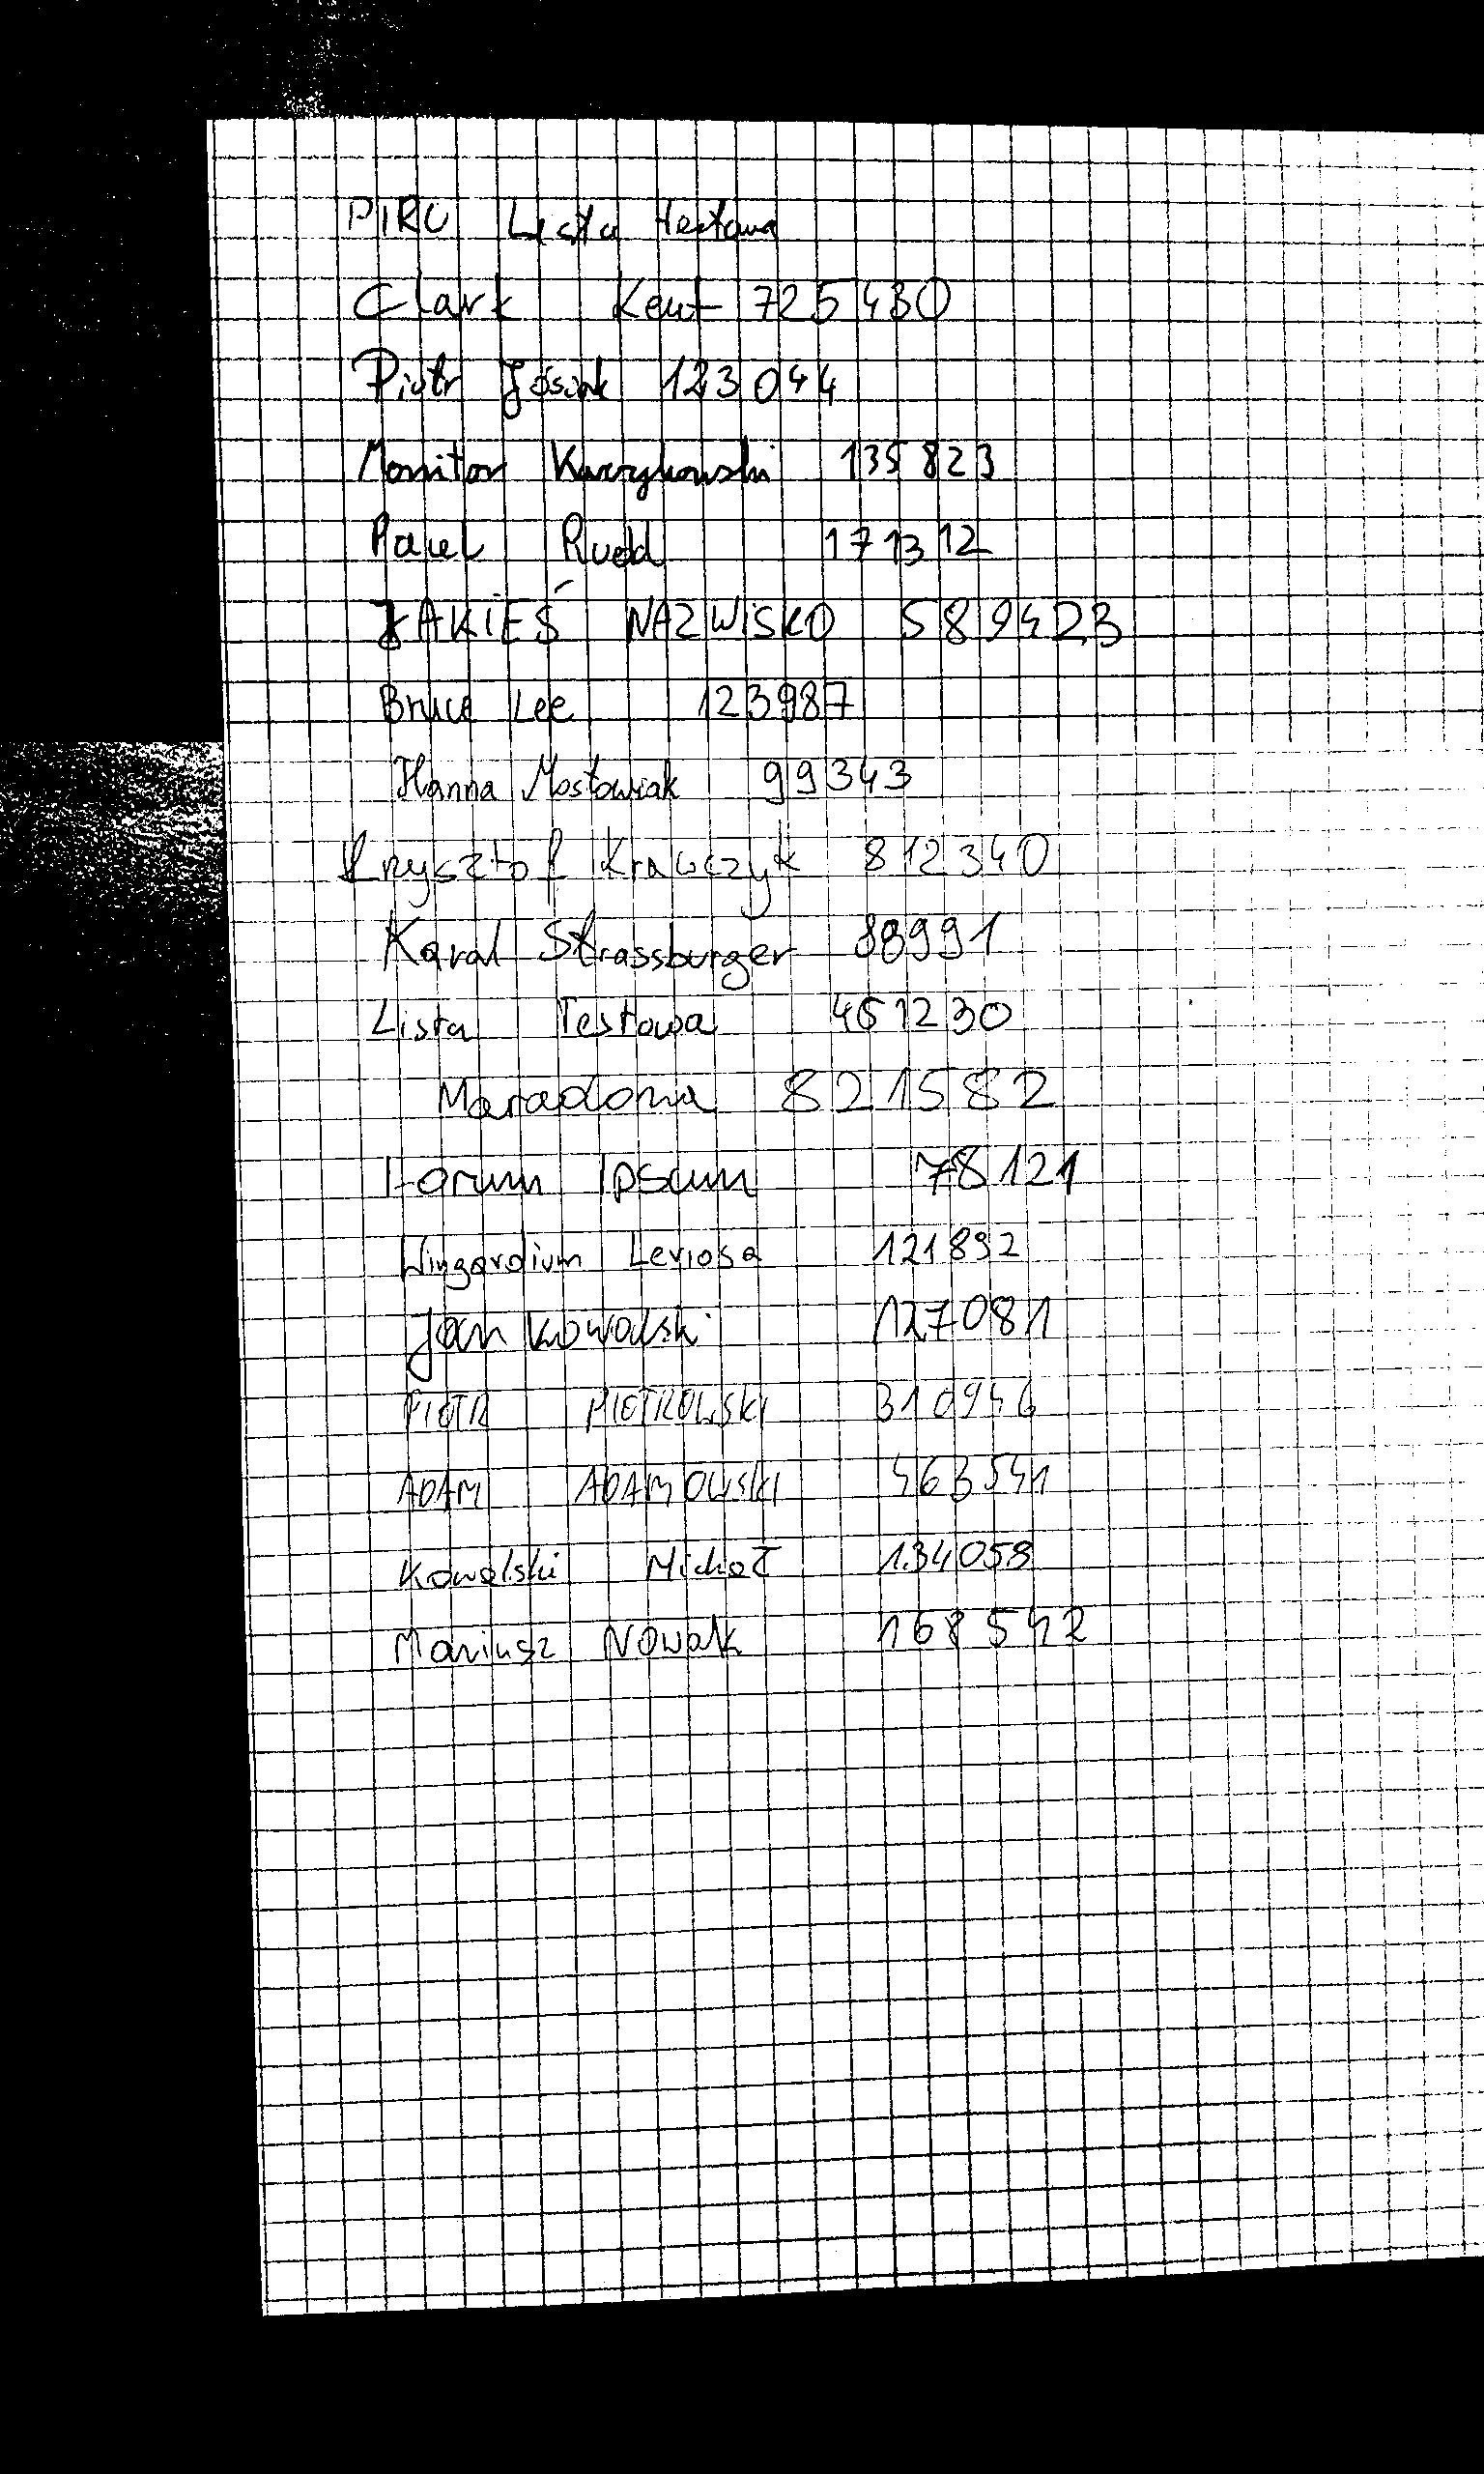 PIRO Lista testowa
Clark Kent 725430
Piotr Jósiak 123044
Monitor Kwarkowski 135823
Paweł Rudd 171312
JAKIEŚ NAZWISKO 589423
Bruce Lee 123987
Hanna Mostowiak 99343
Krzysztof Krawczyk 812340
Karol Strassburger 88991
Lista Testowa 461230
Maradona 821582
Lorum Ipsum 78121
Wingardium Leviosa 121892
Jan Kowalski 127081
PIOTR PIOTROWSKI 310946
ADAM ADAMOWSKI 463541
Kowalski Michał 134058
Mariusz Nowak 168542